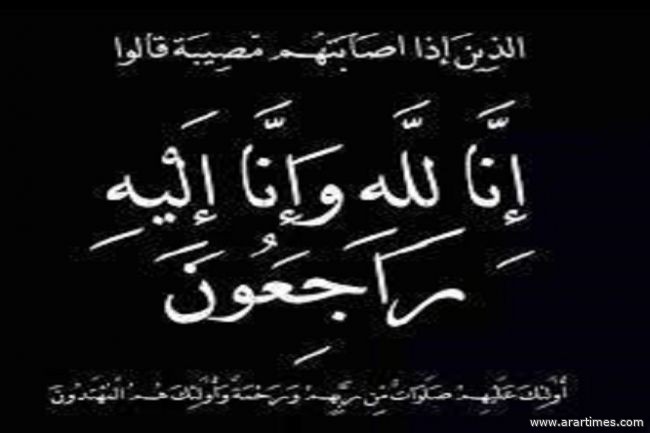 الذِينَ إذَا اصَابَتهُم مّصِيبَة قَالوا
إِنَّا لِلَّه وَإِنَّا إِلَيْهِ
رَاجِعُونَ
أُوْلَئِكَ عَلَيْهِمْ صَلَوَاتٌ مِّن رَّبِّهِمْ وَرَحْمَةٌ وَأُوْلَئِكَ هُمُ الْمُهْتَدُونَ
www.arartimes.com